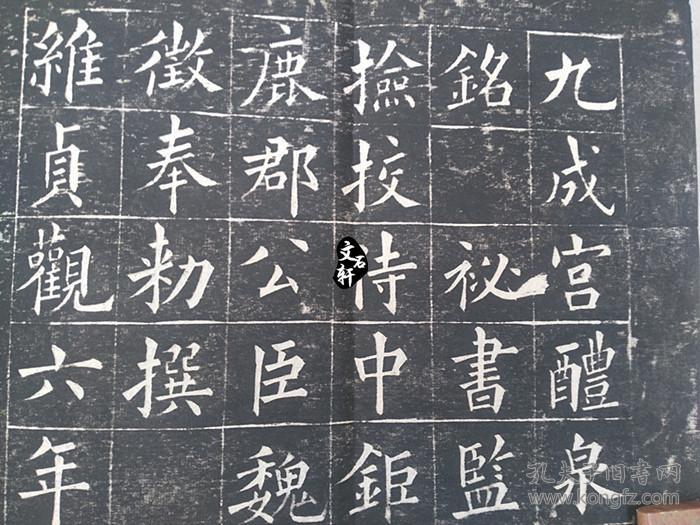 九成宮醴泉
銘 祕書監
撿挍侍中鉅
鹿郡公臣魏
徵奉勑撰
維貞觀六年
文石轩
孔夫子旧书网
www.kongfz.com